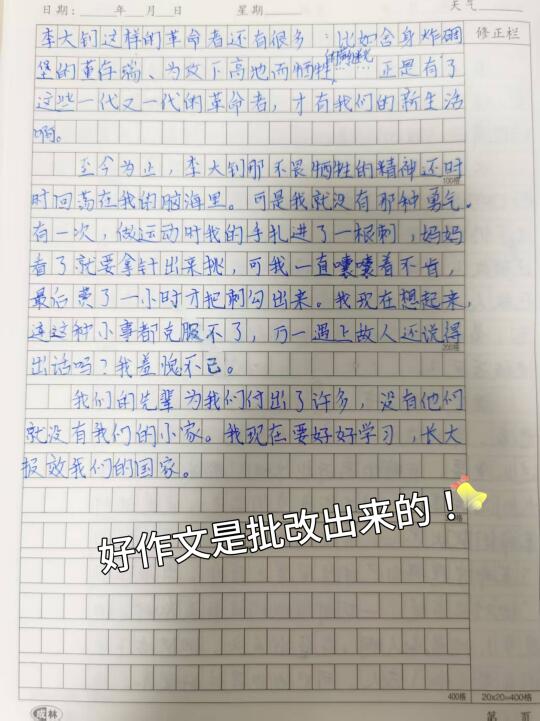 日期：____年__月__日 星期____ 天气____
修正栏
李大钊这样的革命者还有很多：比如舍身炸碉
堡的董存瑞、为攻下高地而牺牲……正是有了
这些一代又一代的革命者，才有我们的新生活
啊。
至今为止，李大钊那不畏牺牲的精神还时
100格
时回荡在我的脑海里。可是我就没有那种勇气。
有一次，做运动时我的手扎进了一根刺，妈妈
看了就要拿针出来挑，可我一直嚷嚷着不肯，
最后费了一小时才把刺勾出来。我现在想起来，
连这种小事都克服不了，万一遇上故人还说得
200格
出话吗？我羞愧不已。
我们的先辈为我们付出了许多，没有他们
就没有我们的小家。我现在要好好学习，长大
报效我们的国家。
好作文是批改出来的！
400格
20x20=400格
成林
第 页